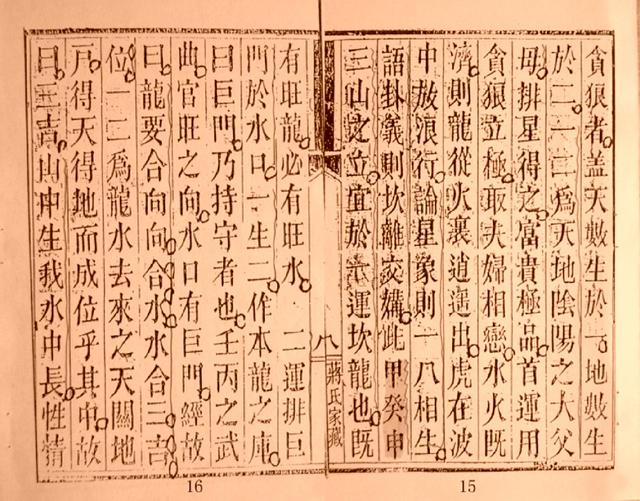 貪狼者蓋天數生於一地數生
於二一二為天地陰陽之大父
母排星得之富貴極品首運用
貪狼立極取夫婦相戀水火既
濟則龍從火裏逍遥出虎在波
中放浪行論星象則一八相生
語卦義則坎離交媾此甲癸申
三山之立宜於 運坎龍也既
八
蔣氏家藏
有旺龍必有旺水 二運排巨
門於水口一生二作本龍之庫
曰巨門乃持守者也壬丙之武
曲官旺之向水口有巨門經故
曰龍要合向向合水水合三吉
位一二為龍水去來之天關地
戶得天得地而成位乎其中故
曰三吉山中生我水中長性情
16
15